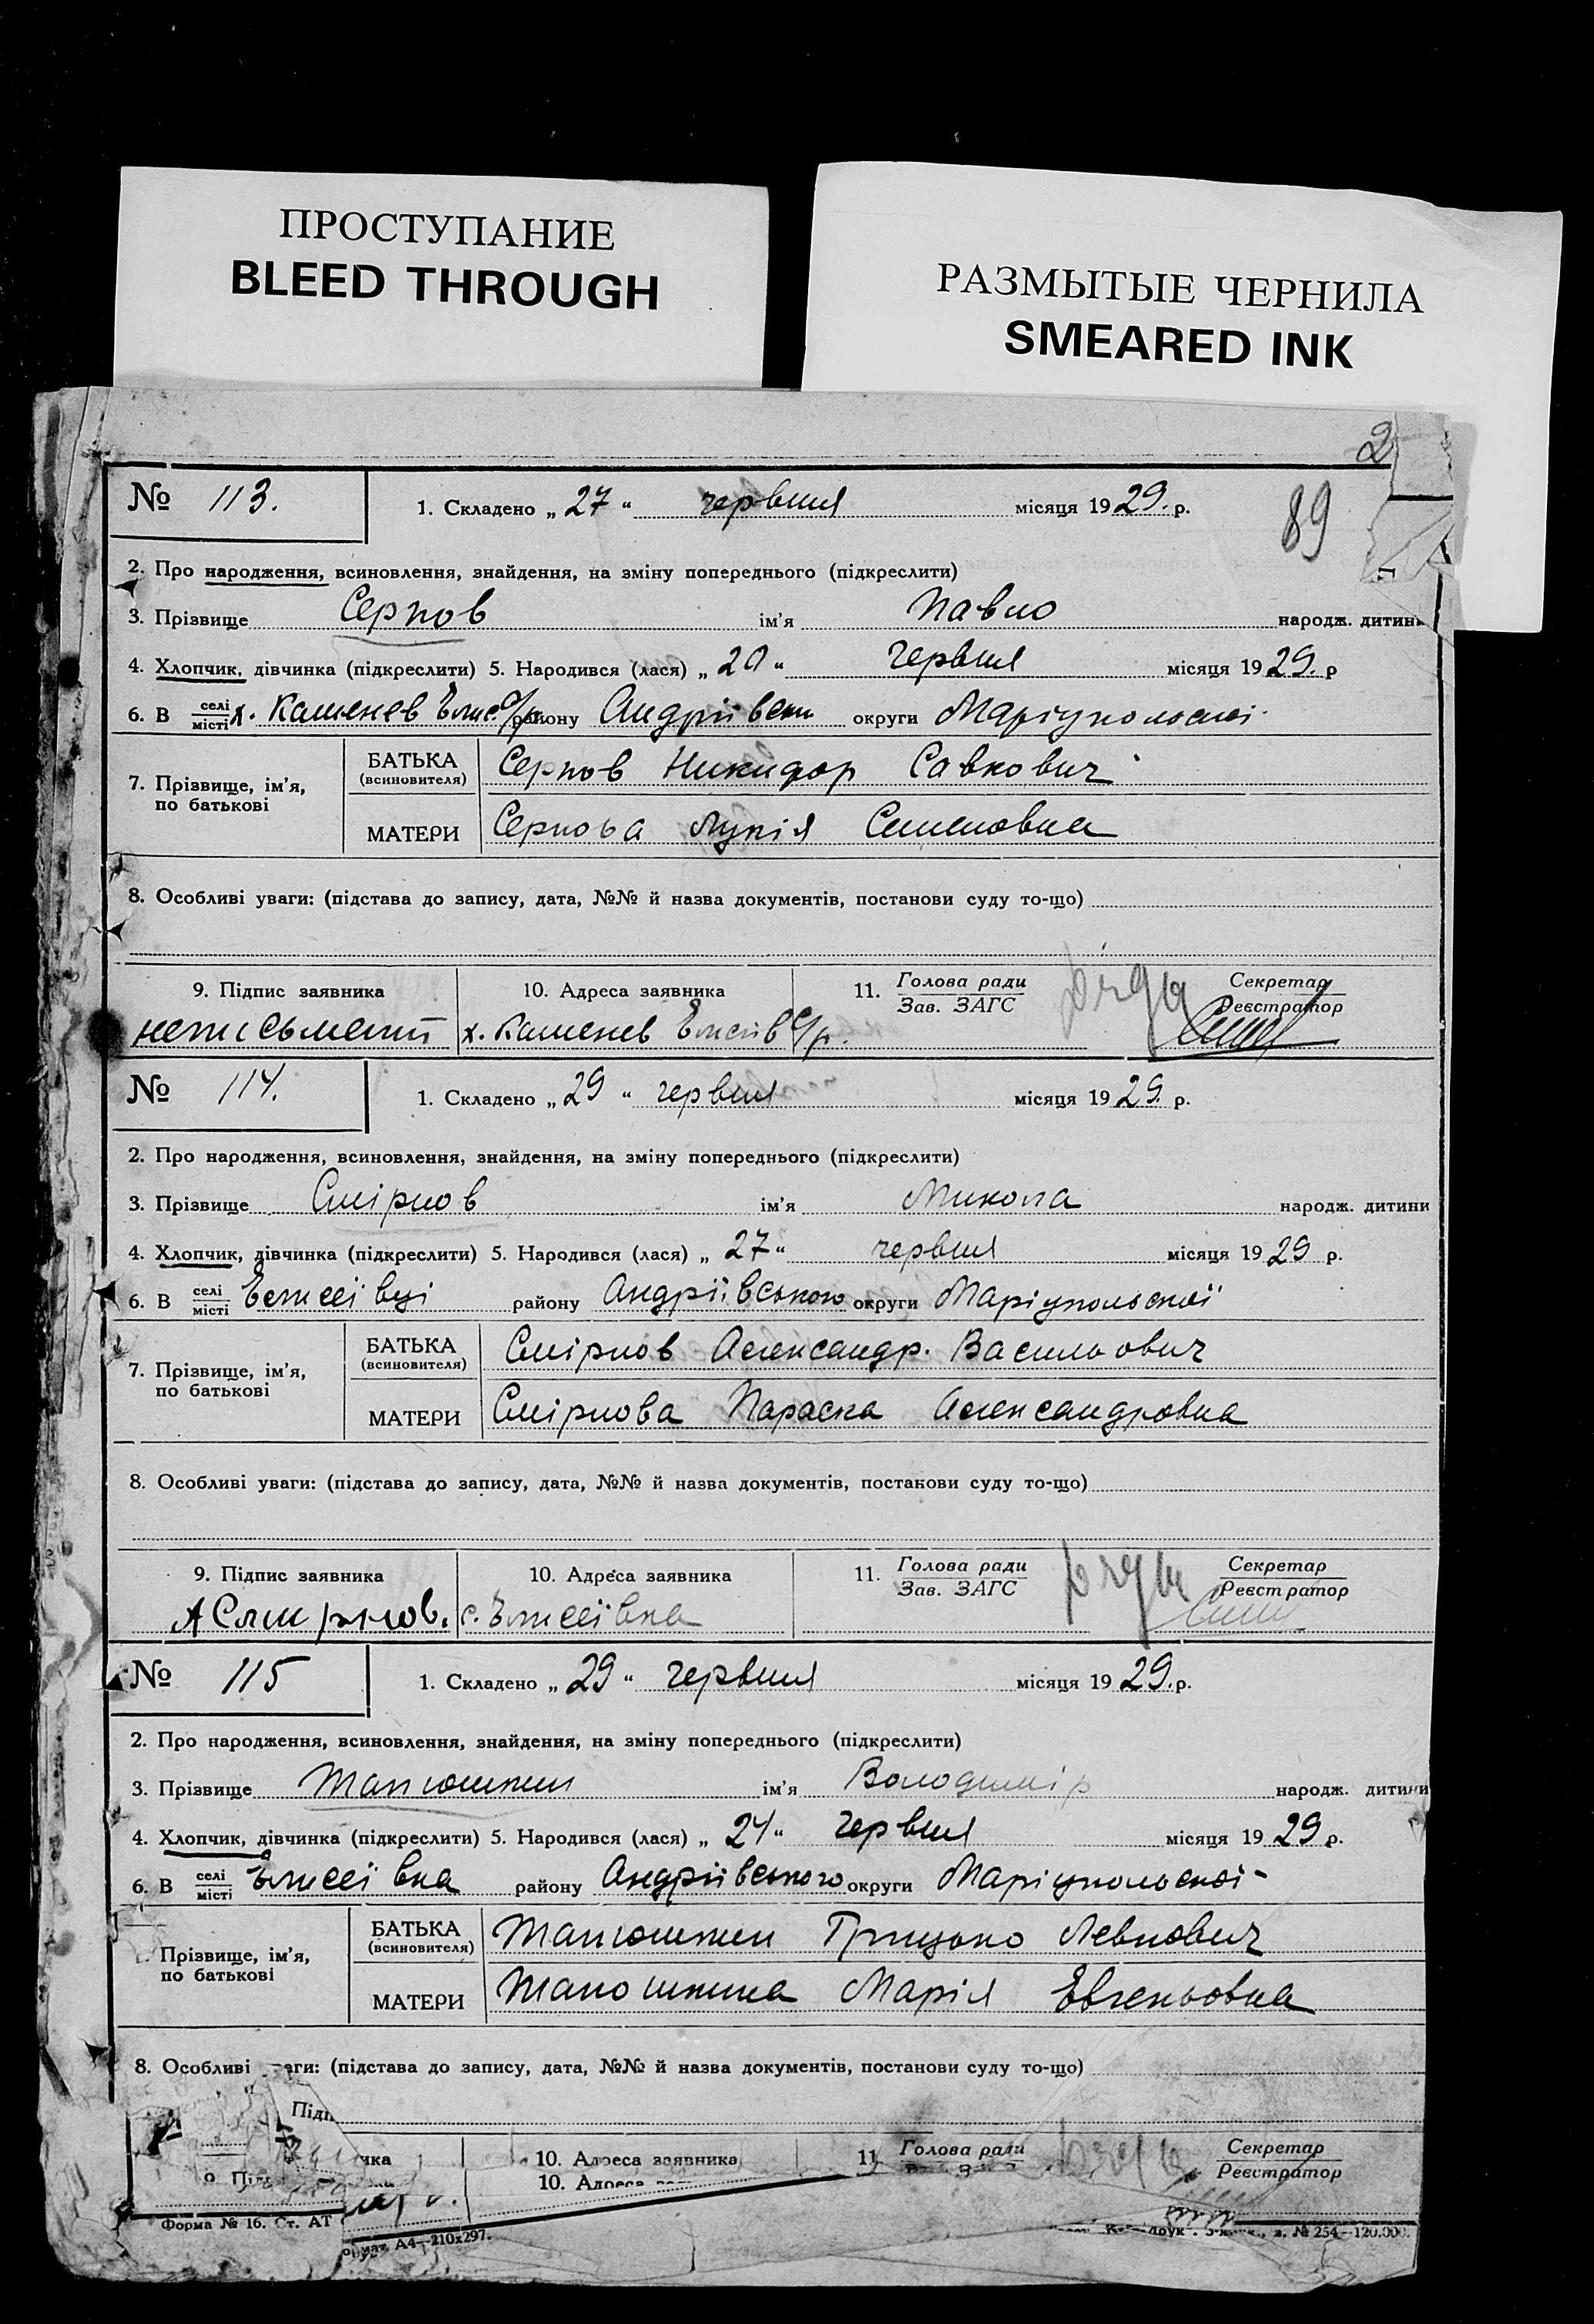 ПРОСТУПАНИЕ
BLEED THROUGH
РАЗМЫТЫЕ ЧЕРНИЛА
SMEARED INK
2
89
№ 113. 1. Складено „ 27 “ червня місяця 1929. р.
2. Про народження, всиновлення, знайдення, на зміну попереднього (підкреслити)
3. Прізвище Серков ім'я Павло народж. дитини
4. Хлопчик, дівчинка (підкреслити) 5. Народився (лася) „ 20 “ червня місяця 1929. р
6. В селі місті х. Каменев Єлис. с/р. району Андріївськ округи Маріупольскої
7. Прізвище, ім'я, по батькові
БАТЬКА (всиновителя) Серков Никифор Савкович
МАТЕРИ Серкова Лукія Семеновна
8. Особливі уваги: (підстава до запису, дата, №№ й назва документів, постанови суду то-що)
9. Підпис заявника 10. Адреса заявника 11. Голова ради Зав. ЗАГС Секретар Реєстратор
неписьменний х. Каменев с/р.
№ 114. 1. Складено „ 29 “ червня місяця 1929. р.
2. Про народження, всиновлення, знайдення, на зміну попереднього (підкреслити)
3. Прізвище Смірнов ім'я Микола народж. дитини
4. Хлопчик, дівчинка (підкреслити) 5. Народився (лася) „ 27 “ червня місяця 1929 р.
6. В селі місті Єлисеївці району Андріївського округи Маріупольскої
7. Прізвище, ім'я, по батькові
БАТЬКА (всиновителя) Смірнов Александр. Васильович
МАТЕРИ Смірнова Параска Александровна
8. Особливі уваги: (підстава до запису, дата, №№ й назва документів, постанови суду то-що)
9. Підпис заявника 10. Адреса заявника 11. Голова ради Зав. ЗАГС Секретар Реєстратор
А Смирнов. с. Єлисеївка
№ 115 1. Складено „ 29 “ червня місяця 1929. р.
2. Про народження, всиновлення, знайдення, на зміну попереднього (підкреслити)
3. Прізвище Матюшкин ім'я Володимір народж. дитини
4. Хлопчик, дівчинка (підкреслити) 5. Народився (лася) „ 24 “ червня місяця 1929 р.
6. В селі місті Єлисеївка району Андріївського округи Маріупольскої
Прізвище, ім'я, по батькові
БАТЬКА (всиновителя) Матюшкин Грицько Левкович
МАТЕРИ Матюшкина Марія Евгеньовна
8. Особливі уваги: (підстава до запису, дата, №№ й назва документів, постанови суду то-що)
10. Адреса заявника 11 Голова ради Секретар Реєстратор
10. Адреса
Форма № 16. Ст. АТ
А4—210х297.
№ 254—120.000.